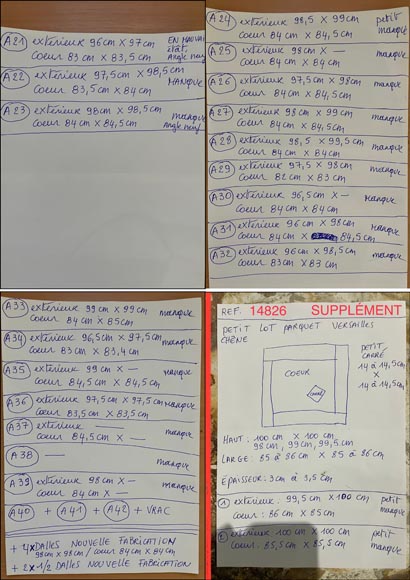 A21 extérieur 96cm X 97cm EN MAUVAIS
coeur 83 cm X 83,5cm état, Angle neuf
A22 extérieur 97,5cm X 98,5cm
Coeur 83,5cm X 84cm MANQUE
A23 extérieur 98cm X 98,5cm manque
Coeur 84cm X 84,5cm Angle neuf
A24 extérieur 98,5 X 99cm petit
Coeur 84cm X 84,5cm manque
A25 extérieur 98cm X —
Coeur 84cm X 84,5cm manque
A26 extérieur 97,5cm X 98cm
Coeur 84cm X 84,5cm manque
A27 extérieur 98cm X 99cm
Coeur 84cm X 84,5cm manque
A28 extérieur 98,5 X 99,5cm
Coeur 84cm X 84cm manque
A29 extérieur 97,5 X 98cm
Coeur 82cm X 83cm manque
A30 extérieur 96,5cm X — manque
Coeur 84cm X 84cm
A31 extérieur 96cm X 98cm manque
Coeur 84cm X 84,5cm
A32 extérieur 96cm X 98,5cm
Coeur 83cm X 83cm manque
A33 extérieur 99cm X 99cm
Coeur 84cm X 85cm manque
A34 extérieur 96,5cm X 97,5cm
Coeur 83cm X 83,4cm manque
A35 extérieur 99cm X — manque
Coeur 84,5cm X 84,5cm
A36 extérieur 97,5cm X 97,5cm manque
Coeur 83,5cm X 83,5cm
A37 extérieur —
Coeur 84,5cm X — manque
A38 —
manque
A39 extérieur 98cm X —
Coeur 84cm X — manque
A40 + A41 + A42 + VRAC
+ 4X DALLES NOUVELLE FABRICATION
98cm X 98cm / coeur 84cm X 84cm
+ 2X 1/2 DALLES NOUVELLE FABRICATION
REF. 14826 SUPPLÉMENT
PETIT LOT PARQUET VERSAILLES
CHÊNE
COEUR
CARRÉ
PETIT
CARRÉ
14 à 14,5cm
X
14 à 14,5cm
HAUT : 100 cm X 100 cm
98cm, 99cm, 99,5cm
LARGE : 85 à 86cm X 85 à 86cm
ÉPAISSEUR : 3cm à 3,5cm
1 extérieur : 99,5cm X 100cm petit
coeur : 86cm X 85cm manque
2 extérieur : 100cm X 100cm petit
coeur : 85,5cm X 85,5cm manque